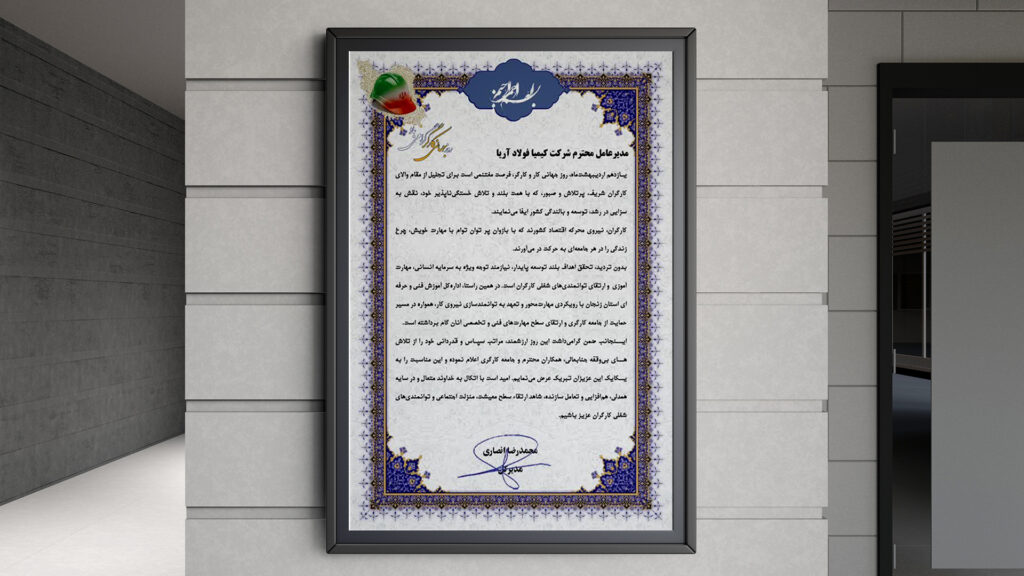 بسم الله الرحمن الرحیم
روز جهانی کارگر گرامی باد
مدیرعامل محترم شرکت کیمیا فولاد آریا
یازدهم اردیبهشت‌ماه، روز جهانی کار و کارگر، فرصت مغتنمی است برای تجلیل از مقام والای
کارگران شریف، پرتلاش و صبور، که با همت بلند و تلاش خستگی‌ناپذیر خود، نقش به
سزایی در رشد، توسعه و بالندگی کشور ایفا می‌نمایند.
کارگران، نیروی محرکه اقتصاد کشورند که با بازوان پر توان توام با مهارت خویش، چرخ
زندگی را در هر جامعه‌ای به حرکت در می‌آورند.
بدون تردید، تحقق اهداف بلند توسعه پایدار، نیازمند توجه ویژه به سرمایه انسانی، مهارت
آموزی و ارتقای توانمندی‌های شغلی کارگران است. در همین راستا، اداره‌کل آموزش فنی و حرفه
ای استان زنجان با رویکردی مهارت‌محور و تعهد به توانمندسازی نیروی کار، همواره در مسیر
حمایت از جامعه کارگری و ارتقای سطح مهارت‌های فنی و تخصصی آنان گام برداشته است.
اینجانب ضمن گرامی‌داشت این روز ارزشمند، مراتب سپاس و قدردانی خود را از تلاش
های بی‌وقفه جنابعالی، همکاران محترم و جامعه کارگری اعلام نموده و این مناسبت را به
یکایک این عزیزان تبریک عرض می‌نمایم. امید است با اتکال به خداوند متعال و در سایه
همدلی، هم‌افزایی و تعامل سازنده، شاهد ارتقاء سطح معیشت، منزلت اجتماعی و توانمندی‌های
شغلی کارگران عزیز باشیم.
محمدرضا انصاری
مدیرکل